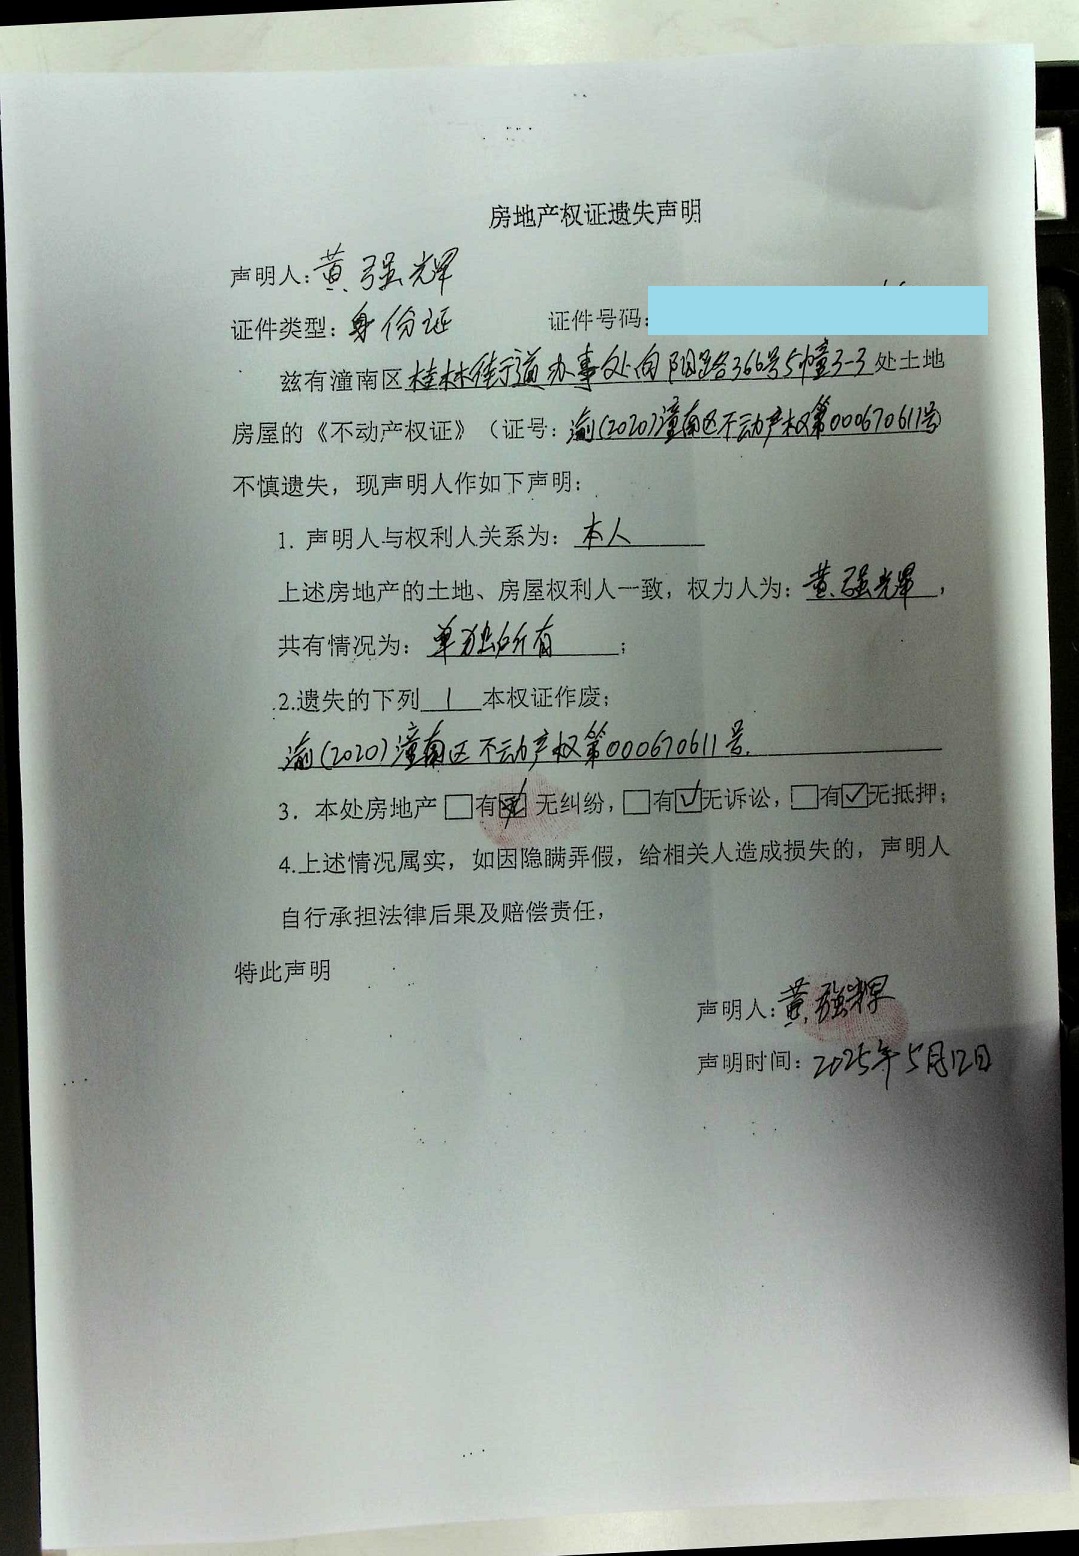 房地产权证遗失声明
声明人:黄强辉
证件类型:身份证 证件号码:
兹有潼南区桂林街道办事处向阳路366号5幢3-3处土地
房屋的《不动产权证》(证号:渝(2020)潼南区不动产权第000670611号
不慎遗失,现声明人作如下声明:
1. 声明人与权利人关系为:本人
上述房地产的土地、房屋权利人一致,权力人为:黄强辉,
共有情况为:单独所有;
2.遗失的下列1本权证作废;
渝(2020)潼南区不动产权第000670611号.
3. 本处房地产□有☑无纠纷,□有☑无诉讼,□有☑无抵押;
4.上述情况属实,如因隐瞒弄假,给相关人造成损失的,声明人
自行承担法律后果及赔偿责任,
特此声明
声明人:黄强辉
声明时间:2025年5月12日